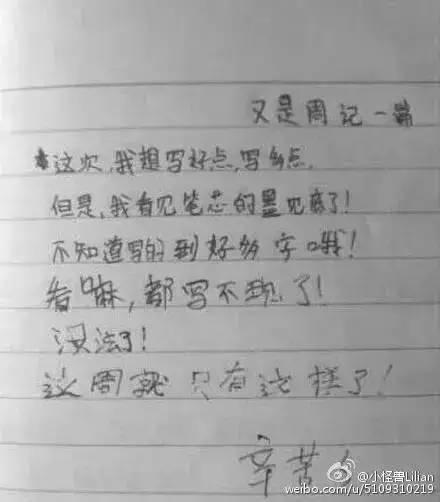 又是周记一篇
这次,我想写好点,写多点.
但是,我看见笔芯的墨见底了!
不知道写的到好多字哦!
看嘛,都写不现了!
没法了!
这周就只有这样了!
辛苦
@小怪兽Lilian
weibo.com/u/5109310219